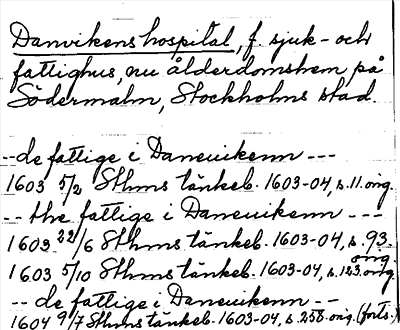 Danvikens hospital, f. sjuk- och
fattighus, nu ålderdomshem på
Södermalm, Stockholms stad.
-- de fattige i Daneuikenn ---
1603 5/2 Sthms tänkeb. 1603-04, s. 11. orig.
-- the fattige i Daneuikenn ---
1603 22/6 Sthms tänkeb. 1603-04, s. 93. orig.
1603 5/10 Sthms tänkeb. 1603-04, s. 123. orig.
-- de fattige i Daneuikenn --
1604 9/7 Sthms tänkeb. 1603-04, s. 258. orig. (forts.)